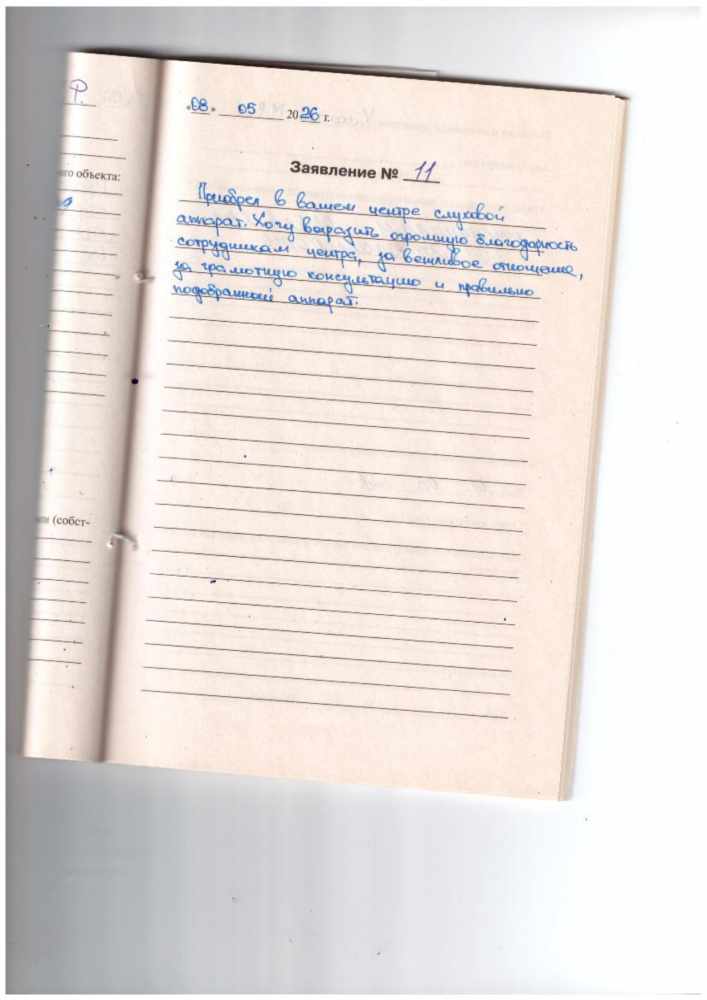 Р.
ого объекта:
ми (собст-
«08» 05 2026 г.
Заявление № 11
Приобрел в вашем центре слуховой
аппарат. Хочу выразить огромную благодарность
сотрудникам центра, за вежливое отношение,
за грамотную консультацию и правильно
подобранный аппарат.